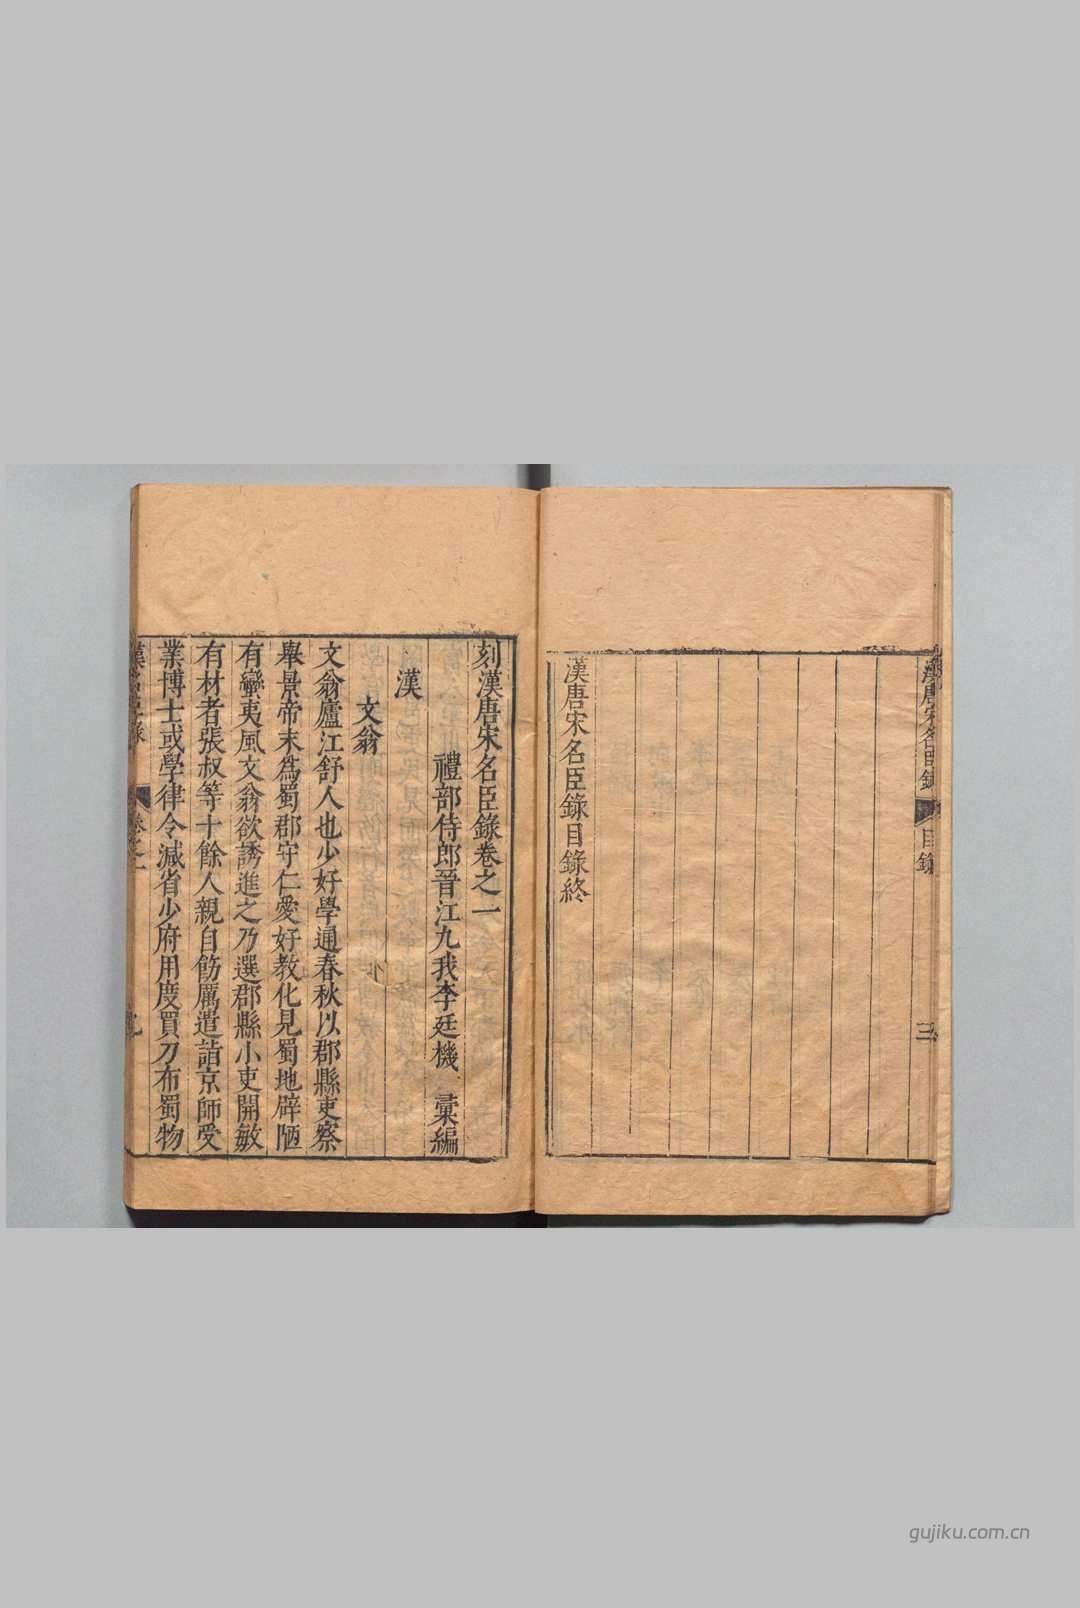 漢唐宋名臣錄
目錄
三
漢唐宋名臣錄目錄終
刻漢唐宋名臣錄卷之一
禮部侍郎晉江九我李廷機 彙編
漢
文翁
文翁廬江舒人也少好學通春秋以郡縣吏察
舉景帝末為蜀郡守仁愛好教化見蜀地辟陋
有蠻夷風文翁欲誘進之乃選郡縣小吏開敏
有材者張叔等十餘人親自飭厲遣詣京師受
業博士或學律令減省少府用度買刀布蜀物
卷之一
gujiku.com.cn